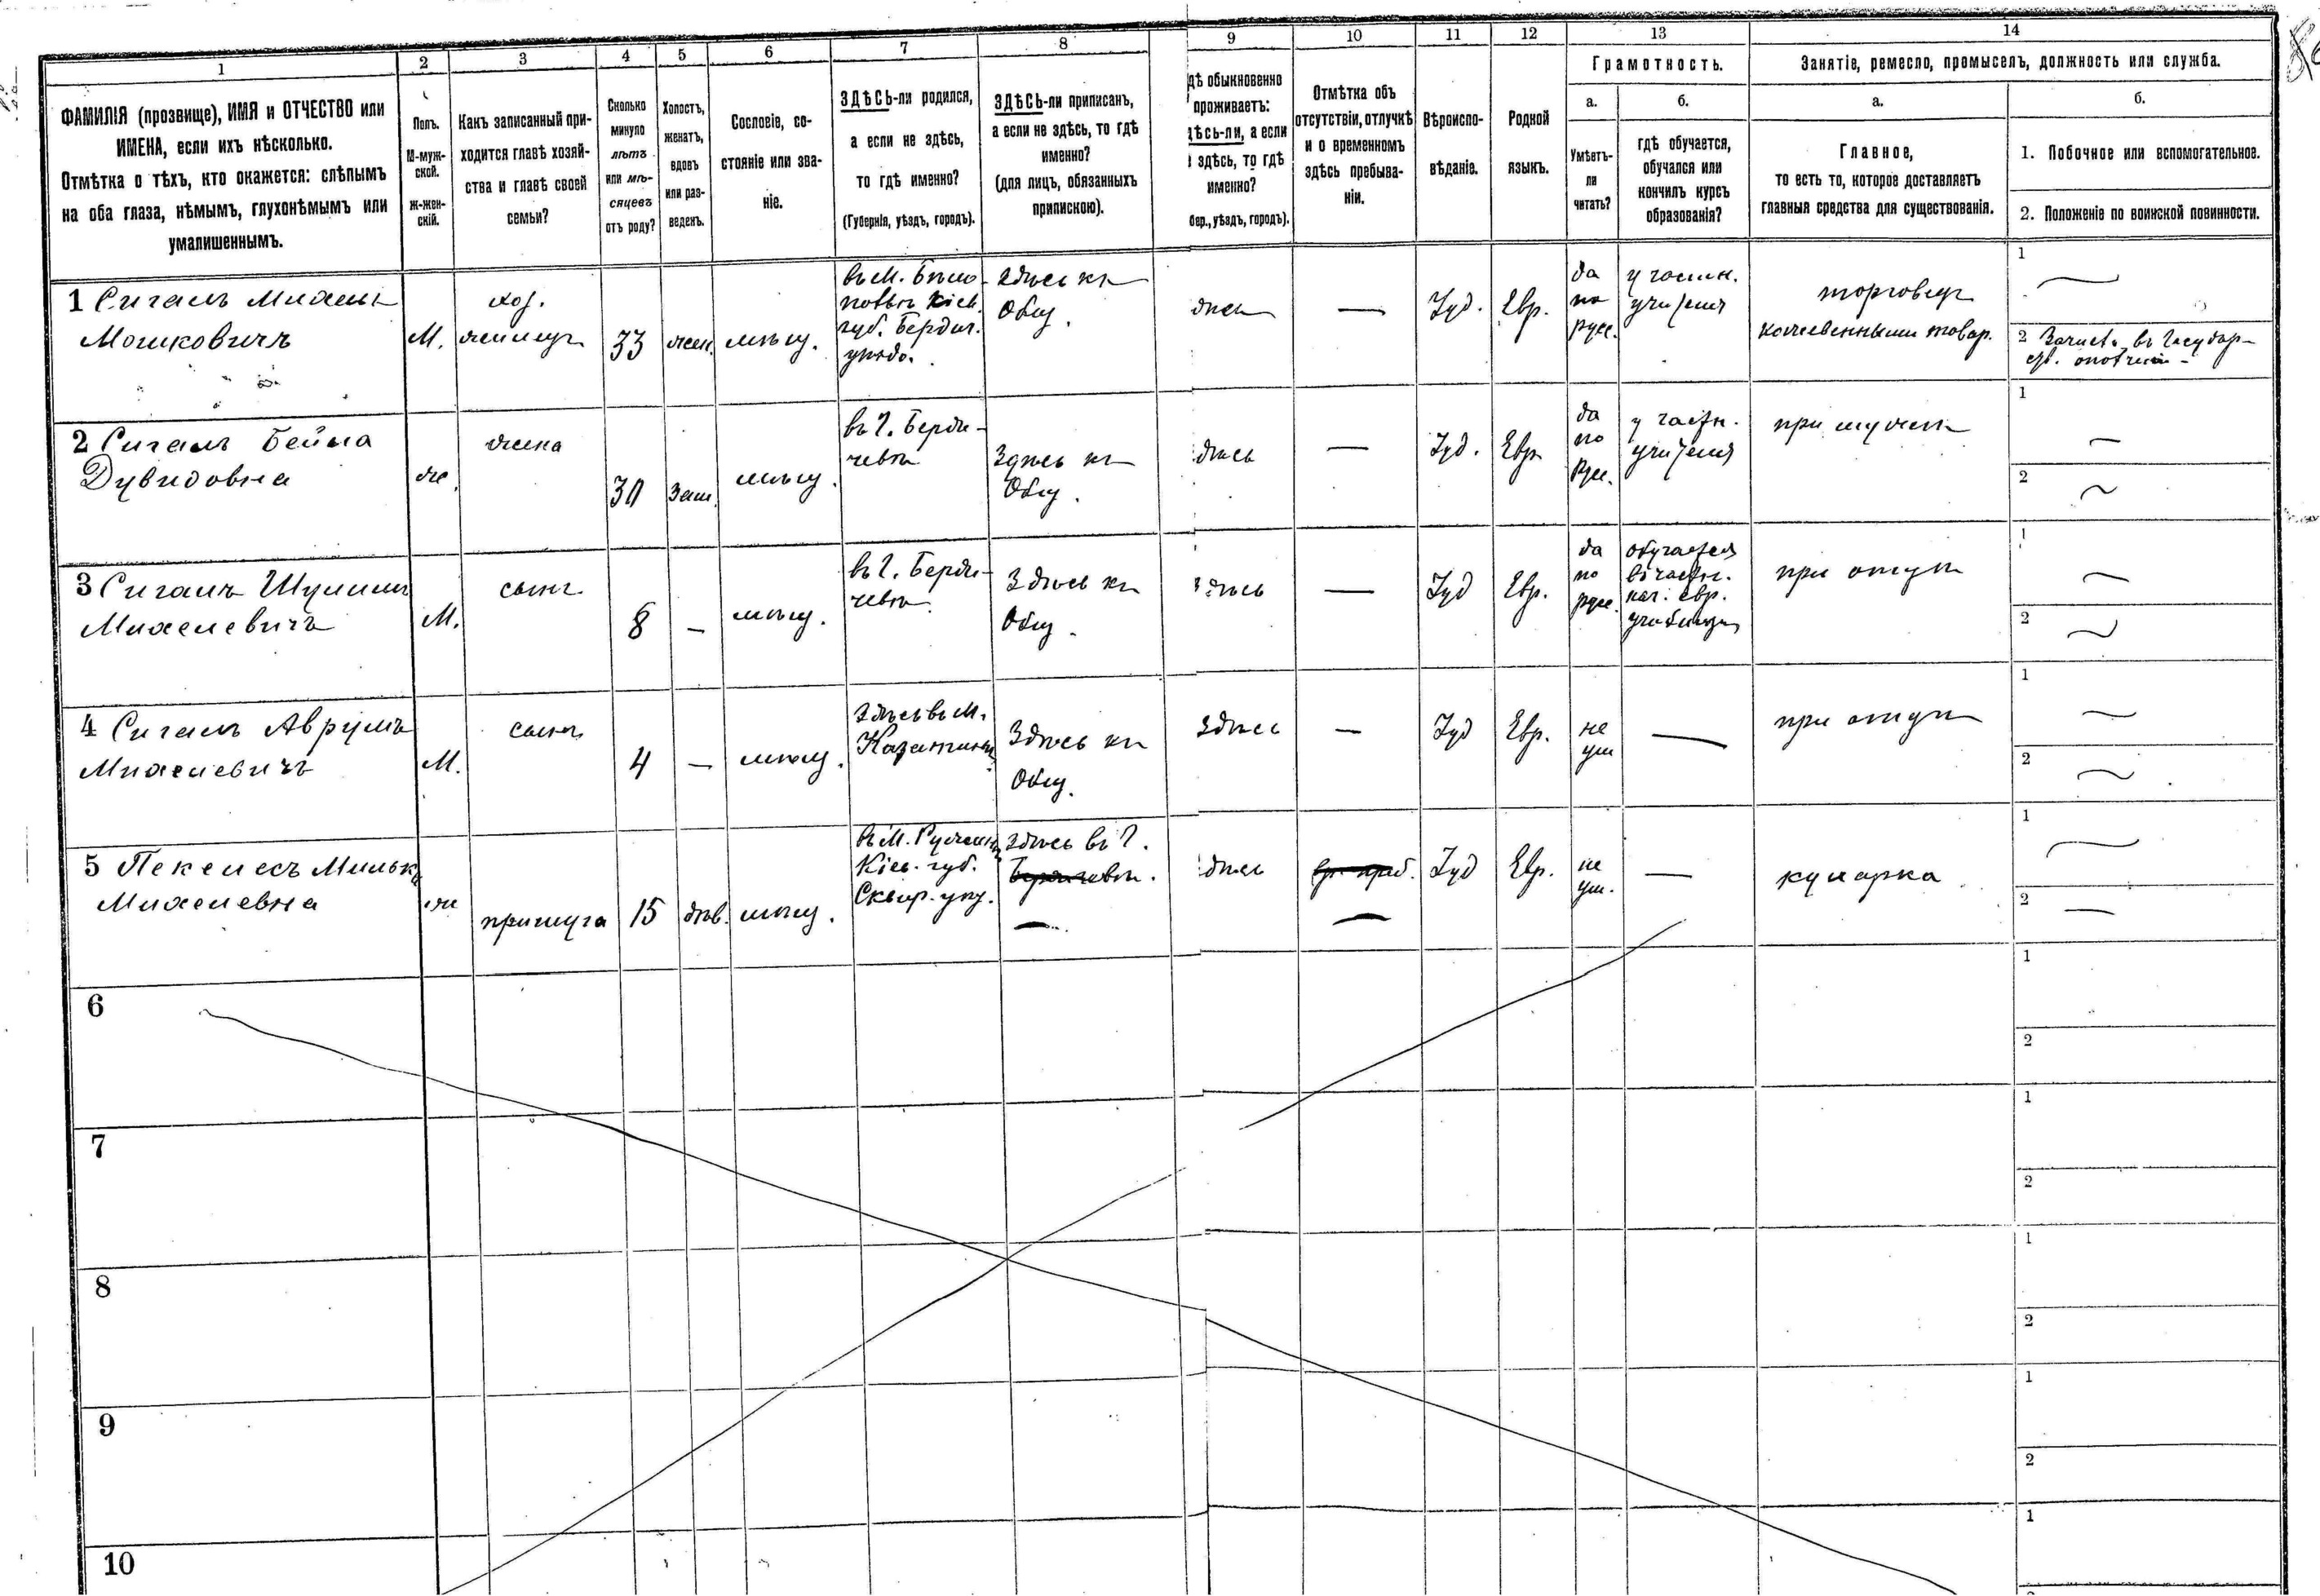 1
2
3
4
5
6
7
8
9
10
11
12
13
14
ФАМИЛІЯ (прозвище), ИМЯ и ОТЧЕСТВО или
ИМЕНА, если ихъ нѣсколько.
Отмѣтка о тѣхъ, кто окажется: слѣпымъ
на оба глаза, нѣмымъ, глухонѣмымъ или
умалишеннымъ.
Полъ.
М-муж-
ской.
Ж-жен-
скій.
Какъ записанный при-
ходится главѣ хозяй-
ства и главѣ своей
семьи?
Сколько
минуло
лѣтъ
или мѣ-
сяцевъ
отъ роду?
Холостъ,
женатъ,
вдовъ
или раз-
веденъ.
Сословіе, со-
стояніе или зва-
ніе.
ЗДѢСЬ-ли родился,
а если не здѣсь,
то гдѣ именно?
(Губернія, уѣздъ, городъ).
ЗДѢСЬ-ли приписанъ,
а если не здѣсь, то гдѣ
именно?
(для лицъ, обязанныхъ
припискою).
дѣ обыкновенно
проживаетъ:
дѣсь-ли, а если
здѣсь, то гдѣ
именно?
бер., уѣздъ, городъ).
Отмѣтка объ
отсутствіи, отлучкѣ
и о временномъ
здѣсь пребыва-
ніи.
Вѣроиспо-
вѣданіе.
Родной
языкъ.
Грамотность.
а.
Умѣетъ-
ли
читать?
б.
гдѣ обучается,
обучался или
кончилъ курсъ
образованія?
Занятіе, ремесло, промыселъ, должность или служба.
а.
Главное,
то есть то, которое доставляетъ
главныя средства для существованія.
б.
1. Побочное или вспомогательное.
2. Положеніе по воинской повинности.
1 Сигалъ Михель
Мошковичъ
М.
хоз.
33
жен.
мѣщ.
въ М. Бѣло-
Кіев.
губ. Бердич.
уѣзда.
здѣсь къ
Общ.
—
Іуд.
Евр.
да
по
рус.
учителя
торговецъ
товар.
1
2
2 Сигалъ Бейла
Дувидовна
ж.
жена
30
зам.
мѣщ.
въ г. Берди-
чевѣ
Здѣсь къ
Общ.
дѣсь
—
Іуд.
Евр.
да
по
рус.
у частн.
учителя
при мужѣ
1 —
2
3 Сигалъ Шулимъ
Михелевичъ
М.
сынъ
8
—
мѣщ.
въ г. Берди-
чевѣ
Здѣсь къ
Общ.
здѣсь
—
Іуд
Евр.
да
по
рус.
обучается
въ частн.
нач. евр.
училищѣ
при отцѣ
1 —
2
4 Сигалъ Аврумъ
Михелевичъ
М.
сынъ
4
—
мѣщ.
Здѣсь въ М.
Казатинѣ
Здѣсь къ
Общ.
здѣсь
—
Іуд
Евр.
не
ум
—
при отцѣ
1 —
2
5 Пекелесъ Мильк
Михелевна
ж
прислуга
15
дѣв.
мѣщ.
въ М. Ружинѣ
Кіев. губ.
Сквир. уѣз.
здѣсь въ г.
Бердичевѣ.
—
дѣсь
—
Іуд
Евр.
не
ум.
—
кухарка
1
2 —
6
1
2
7
1
2
8
1
2
9
1
2
10
1